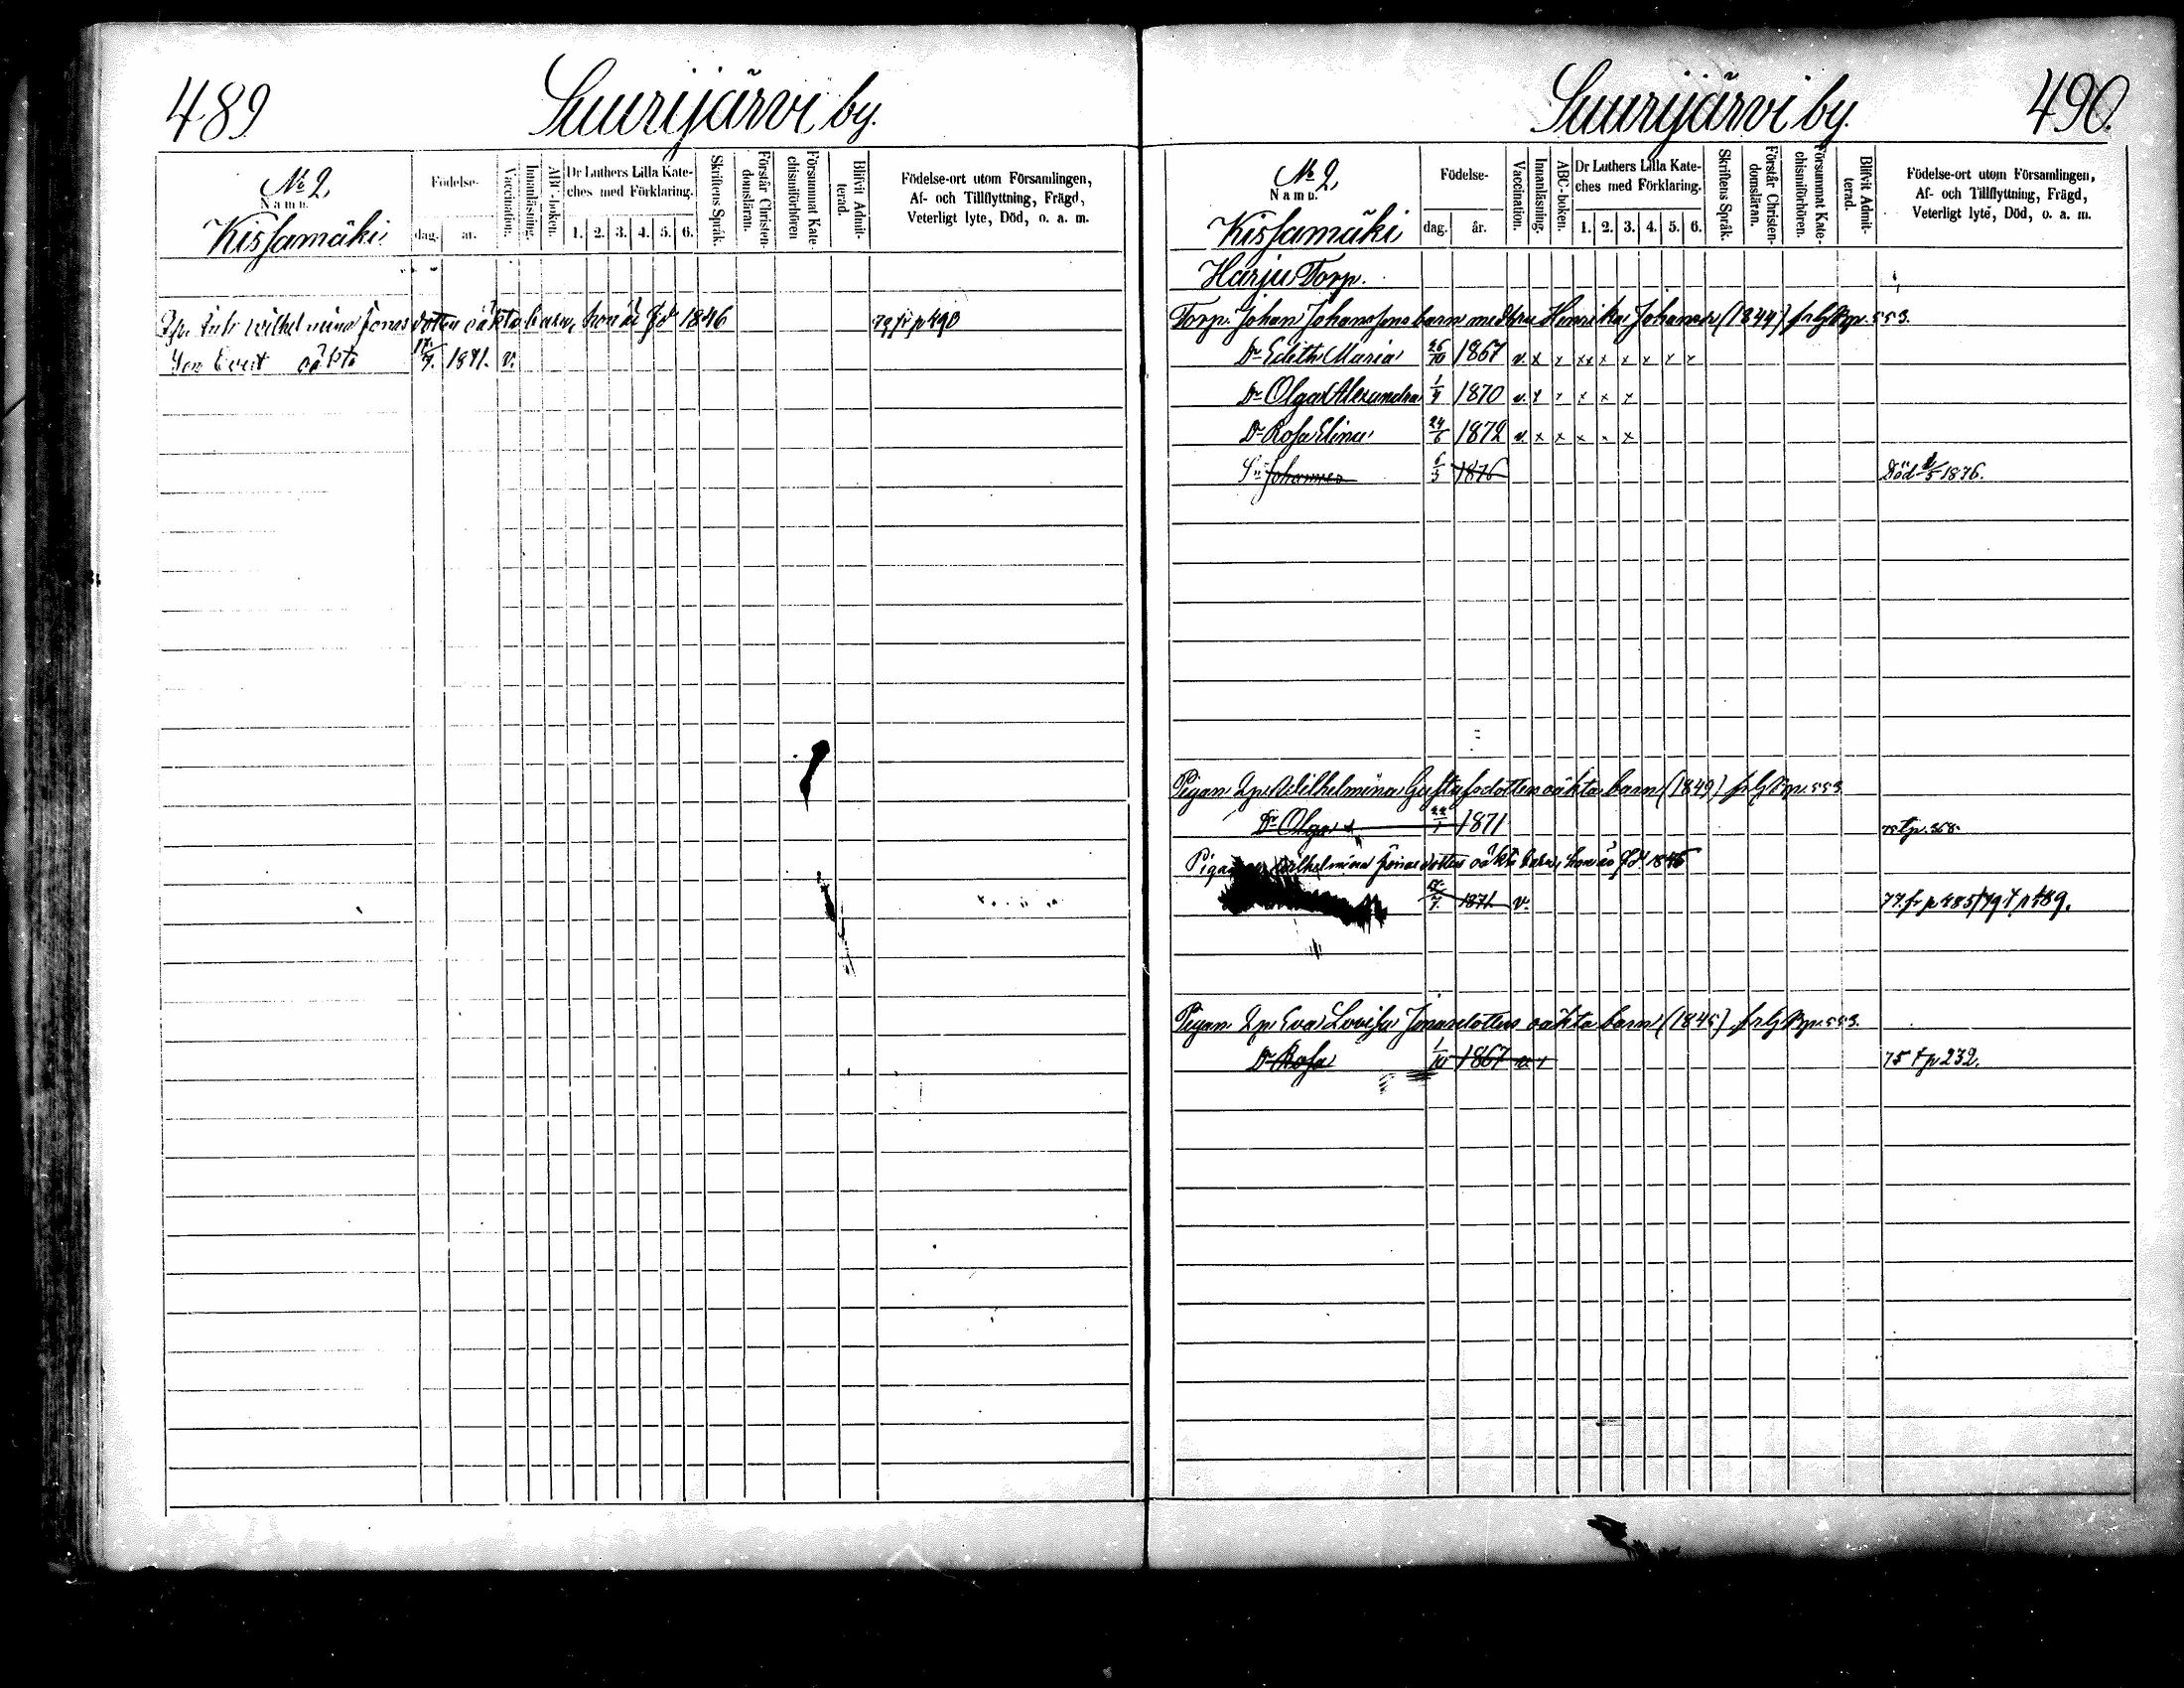 489 Suurijärvi by.
№ 2.
Namn.
Kissamäki
Födelse-
dag. år.
Vaccination.
Innanläsning.
ABC-boken.
Dr Luthers Lilla Kate-
ches med Förklaring.
1. 2. 3. 4. 5. 6.
Skriftens Språk.
Förstår Christen-
domsläran.
Försummat Kate-
chismiförhören
Blifvit Admit-
terad.
Födelse-ort utom Församlingen,
Af- och Tillflyttning, Frägd,
Veterligt lyte, Död, o. a. m.
Wilhelmina Jonasdotter oäkta barn, hon är fd 1846 79 fr p 490
Son Evert oäkta 17/7. 1871. v.
Suurijärvi by. 490.
№ 2.
Namn.
Kissamäki
Födelse-
dag. år.
Vaccination.
Innanläsning.
ABC-boken.
Dr Luthers Lilla Kate-
ches med Förklaring.
1. 2. 3. 4. 5. 6.
Skriftens Språk.
Förstår Christen-
domsläran.
Försummat Kate-
chismiförhören.
Blifvit Admit-
terad.
Födelse-ort utom Församlingen,
Af- och Tillflyttning, Frägd,
Veterligt lyte, Död, o. a. m.
Harju Torp.
Torp. Johan Johanssons barn med hu Henrika Johansd (1844) 553.
Dr Edith Maria 26/10 1867 v. x x xx x x x x x
Dr Olga Alexandra 1/4 1870 v. x x x x x
Dr Rosa Elina 24/6 1872 v. x x x x x
Sn Johannes 6/3 1876 Död /5 1876.
Pigan Wilhelmina Gustafsdotters oäkta barn (1849) 553
Dr Olga 22/1 1871 75 t p. 368.
Pigan Wilhelmina Jonasdotters oäkta barn, hon är fd. 1846
17/7. 1871 v. 77. fr p 485/79 t p 489.
Pigan Eva Lovisa Jonasdotters oäkta barn (1845) 553.
Dr Rosa 1/10 1867 v. x 75 t p 232.